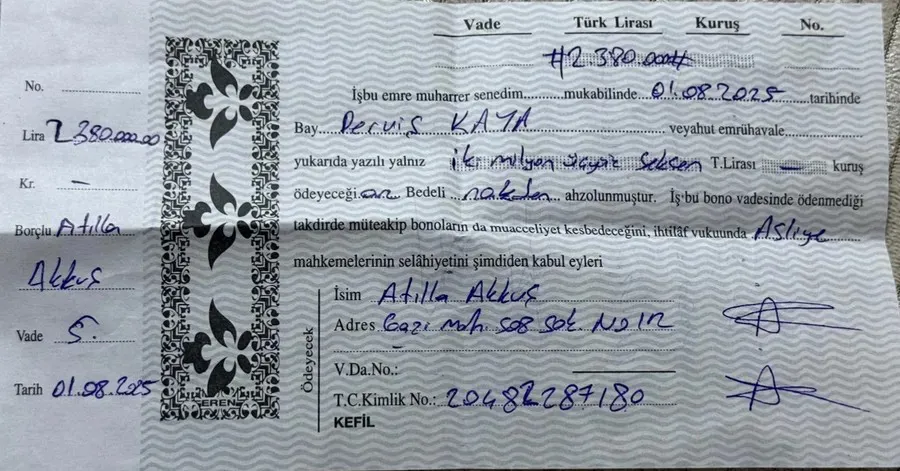 No.
Lira 2380.000.00
Kr. —
Borçlu Atilla
Akkuş
Vade 5.
Tarih 01.08.2025
ERENZ
Vade Türk Lirası Kuruş No.
#2.380.000#
İşbu emre muharrer senedim mukabilinde 01.08.2025 tarihinde
Bay Derviş KAYA veyahut emrühavale
yukarıda yazılı yalnız iki milyon üçyüz Seksen T.Lirası — kuruş
ödeyeceğ Bedeli nakden ahzolunmuştur. İşbu bono vadesinde ödenmediği
takdirde müteakip bonoların da muacceliyet kesbedeceğini, ihtilâf vukuunda Asliye
mahkemelerinin selâhiyetini şimdiden kabul eyleri
Ödeyecek
İsim Atilla Akkuş
Adres Gazi mah. sok. No
V.Da.No.:
T.C.Kimlik No.: 20482287180
KEFİL